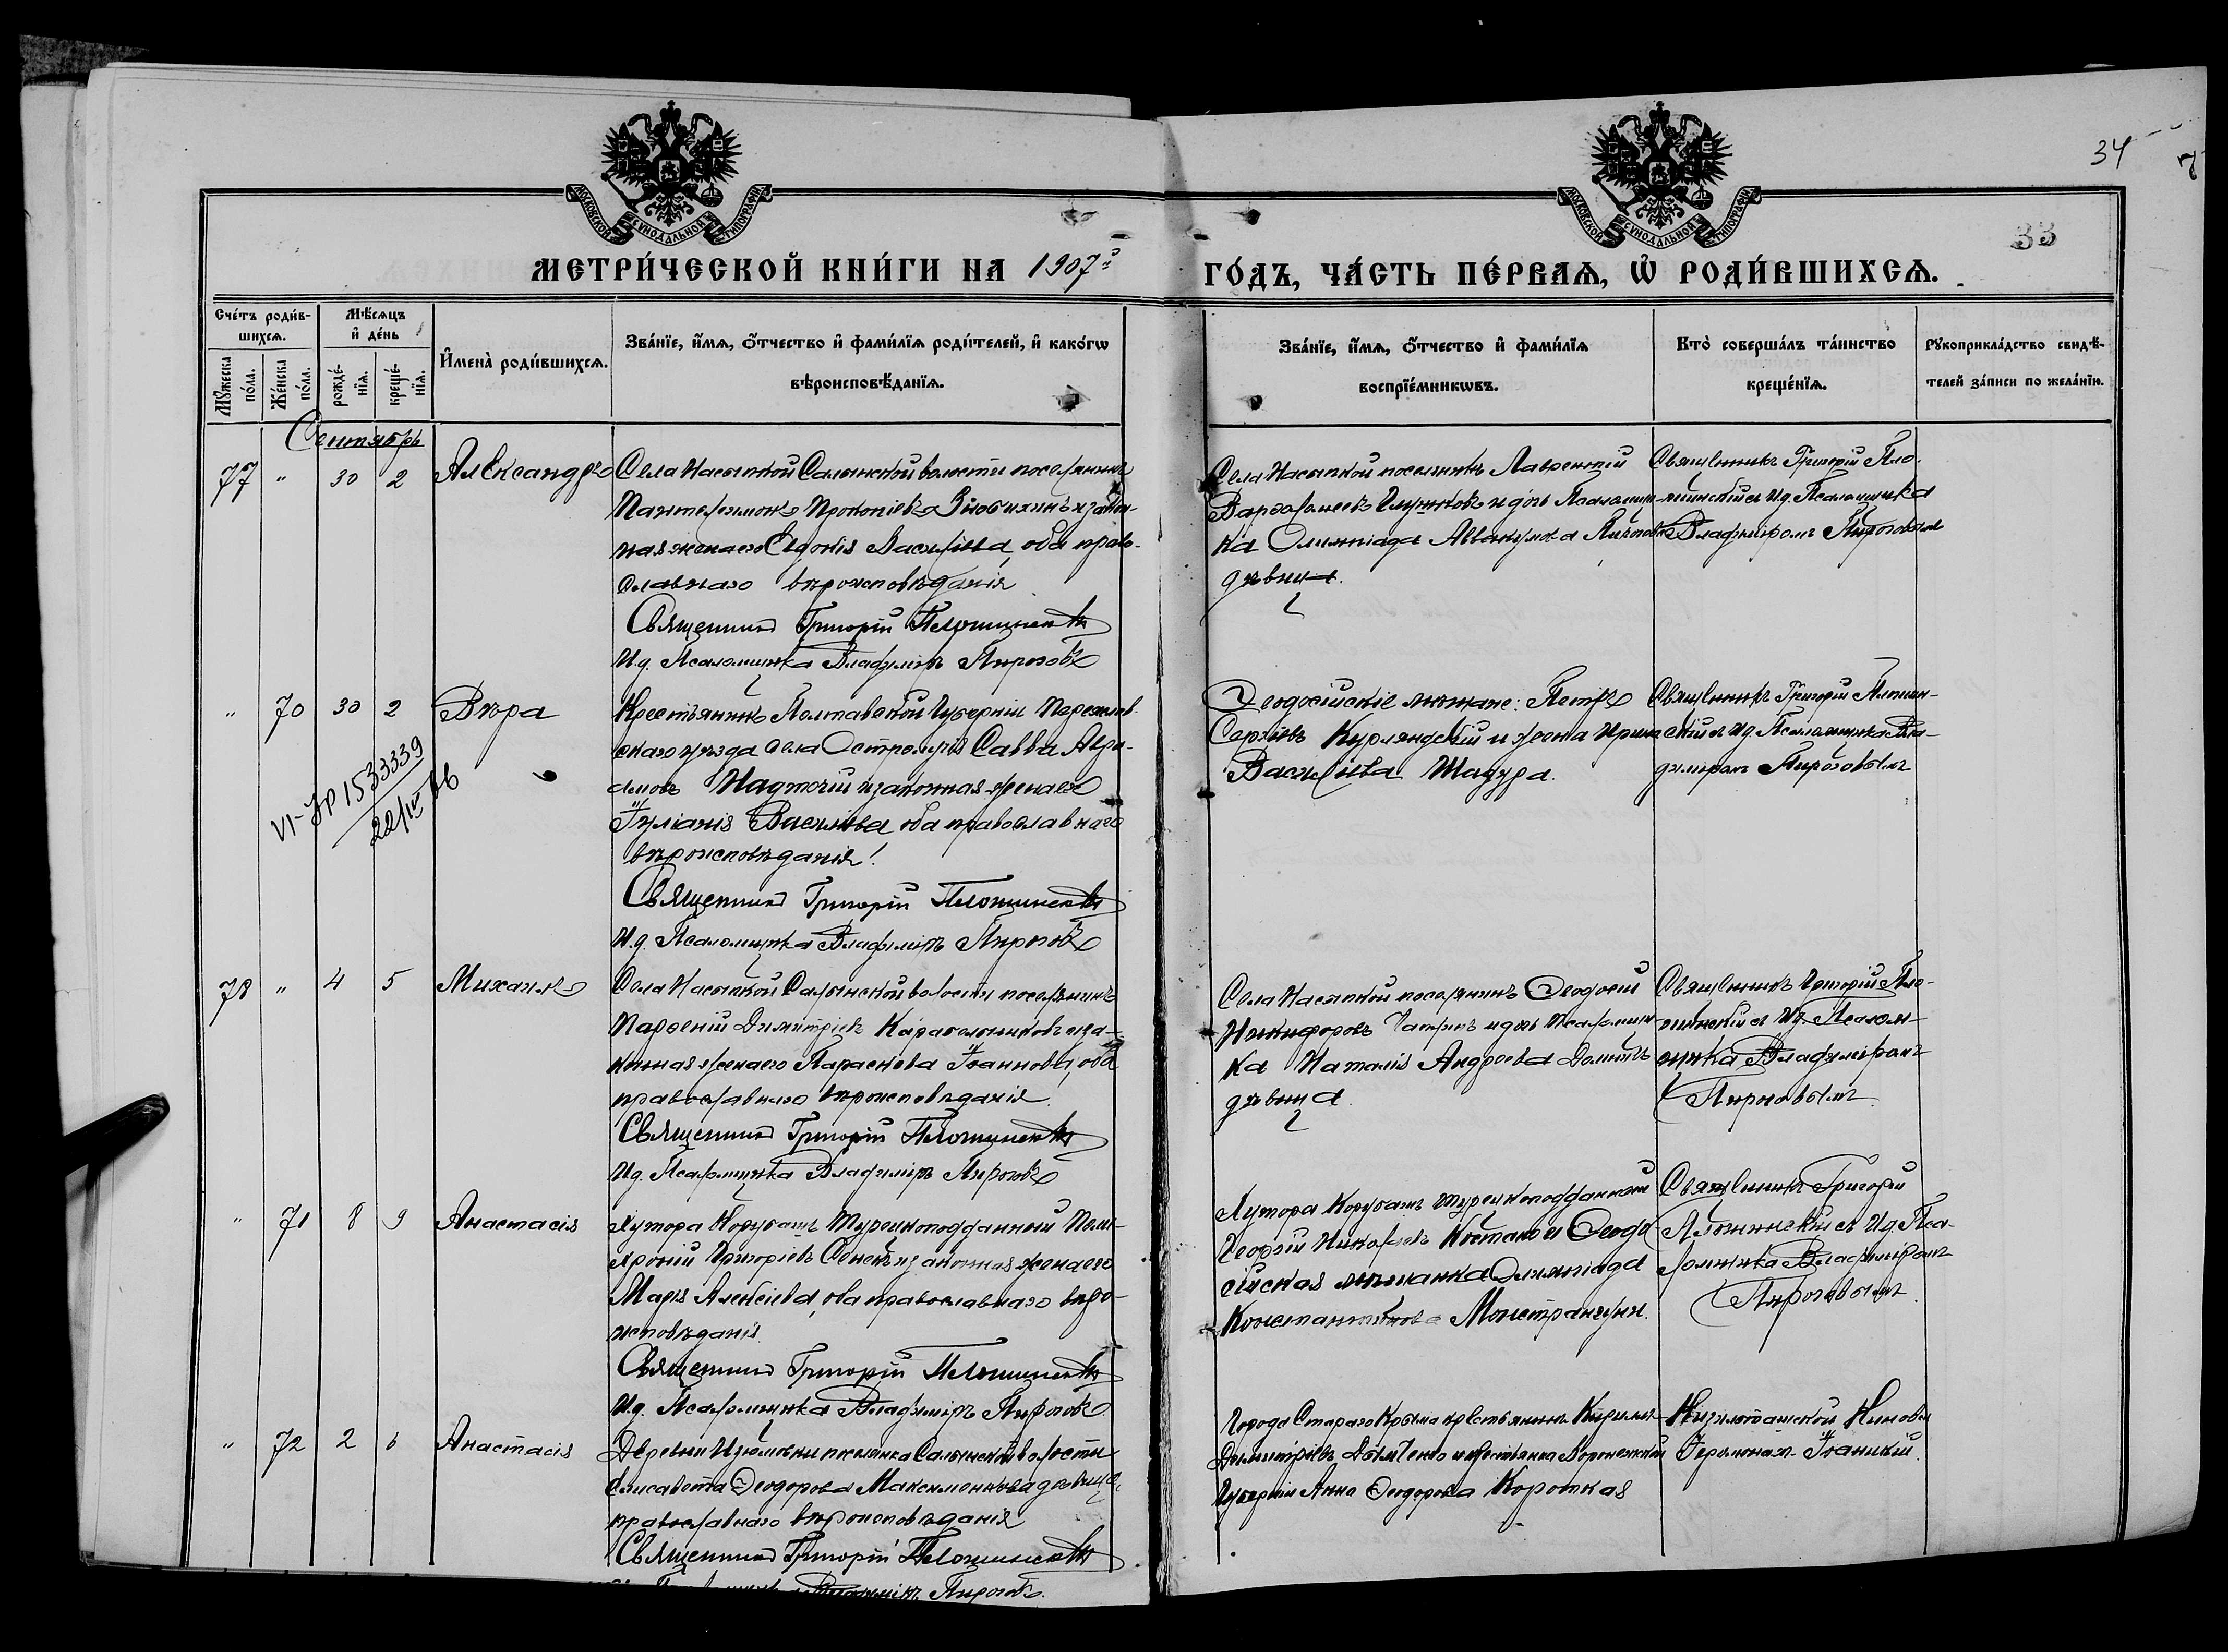 34
33
МОСКОВСКОЙ СѴНОДАЛЬНОЙ ТИПОГРАФІИ
МОСКОВСКОЙ СѴНОДАЛЬНОЙ ТИПОГРАФІИ
МЕТРИ́ЧЕСКОЙ КНИ́ГИ НА 1907й ГО́ДЪ, ЧА́СТЬ ПЕ́РВАѦ, Ѡ҆ РОДИ́ВШИХСѦ.
Сче́тъ роди́в-
шихсѧ.
Мꙋ́жеска по́ла.
Же́нска по́ла.
Мѣ́сѧцъ
и҆ де́нь
рожде́-нїѧ.
креще́-нїѧ.
И҆мена̀ роди́вшихсѧ.
Зва́нїе, и҆́мѧ, ѻ҆́тчество и҆ фами́лїѧ роди́телей, и҆ како́гѡ
вѣроисповѣ́данїѧ.
Зва́нїе, и҆́мѧ, ѻ҆́тчество и҆ фами́лїѧ
воспрїе́мникѡвъ.
Кто̀ соверша́лъ та́инство
креще́нїѧ.
Рꙋкоприкла́дство свидѣ́-
телей за́писи по жела́нїю.
Сентябрь
77 " 30 2 Александръ
Села Насыпкой Салынской волости поселянинъ
Пантелеимонъ Прокопіевъ и закон-
ная жена его Евдокія Васильева, оба право-
славнаго вѣроисповѣданія
Священникъ Григорій Плотинскій
И.д. Псаломщика Владиміръ Пироговъ
Села Насыпкой поселянинъ Лаврентій
Варѳоломеевъ и дочь Псаломщи-
ка Олимпіада Аввакумова
дѣвица.
Священникъ Григорій Пло-
тинскій съ И.д. Псаломщика
Владиміромъ Пироговымъ
" 70 30 2 Вѣра
VI-ЯР 1533339
22/IV 66
Крестьянинъ Полтавской Губерніи Переяслав-
скаго уѣзда села Савва Авра-
амовъ Надточій и законная жена его
Іуліанія Васильева оба православнаго
вѣроисповѣданія.
Священникъ Григорій Плотинскій
И.д. Псаломщика Владиміръ Пироговъ
Ѳеодосійскіе мѣщане: Петръ
Сергіевъ Курляндскій и Ирина
Васильева Шадура.
Священникъ Григорій Плотин-
скій съ И.д. Псаломщика Вла-
диміромъ Пироговымъ
78 " 4 5 Михаилъ
Села Насыпкой Салынской волости поселянинъ
Парѳеній Димитріевъ и за-
конная жена его Параскева Іоаннова, оба
православнаго вѣроисповѣданія
Священникъ Григорій Плотинскій
И.д. Псаломщика Владиміръ Пироговъ
Села Насыпкой поселянинъ Ѳеодосій
Никифоровъ и дочь Псаломщи-
ка Наталія Андреева
дѣвица.
Священникъ Григорій Пло-
тинскій съ И.д. Псалом-
щика Владиміромъ
Пироговымъ
" 71 8 9 Анастасія
Хутора Корубашъ Турецкоподданный
Григоріевъ и законная жена его
Марія Алексіева, оба православнаго вѣро-
исповѣданія.
Священникъ Григорій Плотинскій
И.д. Псаломщика Владиміръ Пироговъ
Хутора Корубашъ турецкоподданный
Георгій Николаевъ и Ѳеодо-
сійская мѣщанка Олимпіада
Константинова
Священникъ Григорій
Плотинскій съ И.д. Пса-
ломщика Владиміромъ
Пироговымъ
" 72 2 6 Анастасія
Деревни Изюмовки поселянка Салынской волости
Елисавета Ѳеодорова Максименкова дѣвица,
православнаго вѣроисповѣданія
Священникъ Григорій Плотинскій
Владиміръ Пироговъ.
Города Стараго Крыма крестьянинъ Кириллъ
Димитріевъ и крестьянка Воронежской
Губерніи Анна Ѳеодорова Короткая
Кизилташской Киновіи
Іеромонахъ Іоанникій.